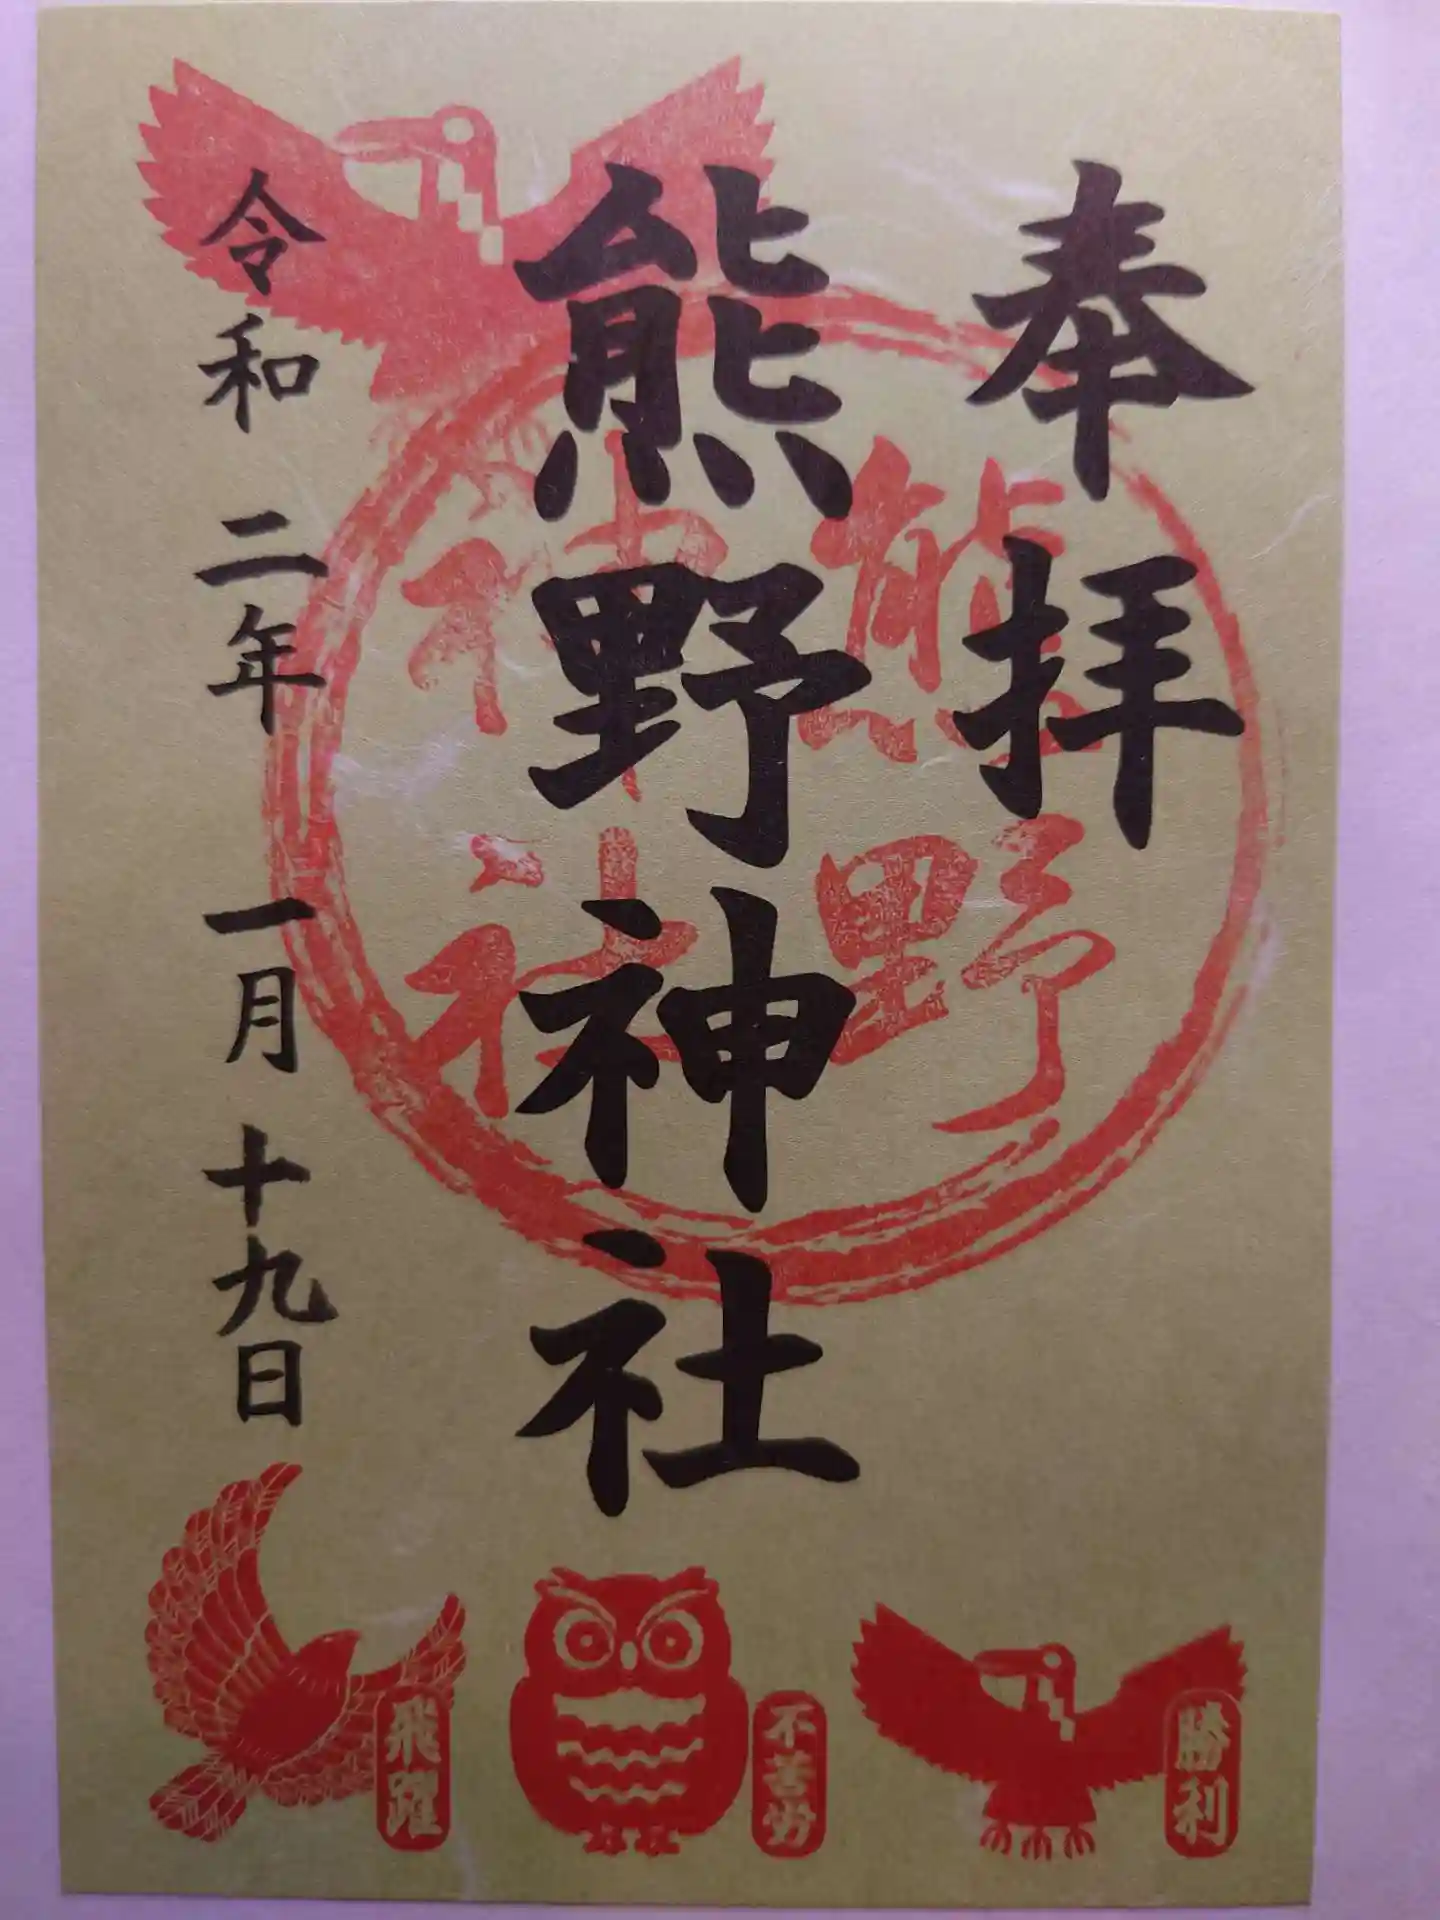 奉拝
熊野神社
熊野
神社
令和二年一月十九日
勝利
不苦労
飛躍